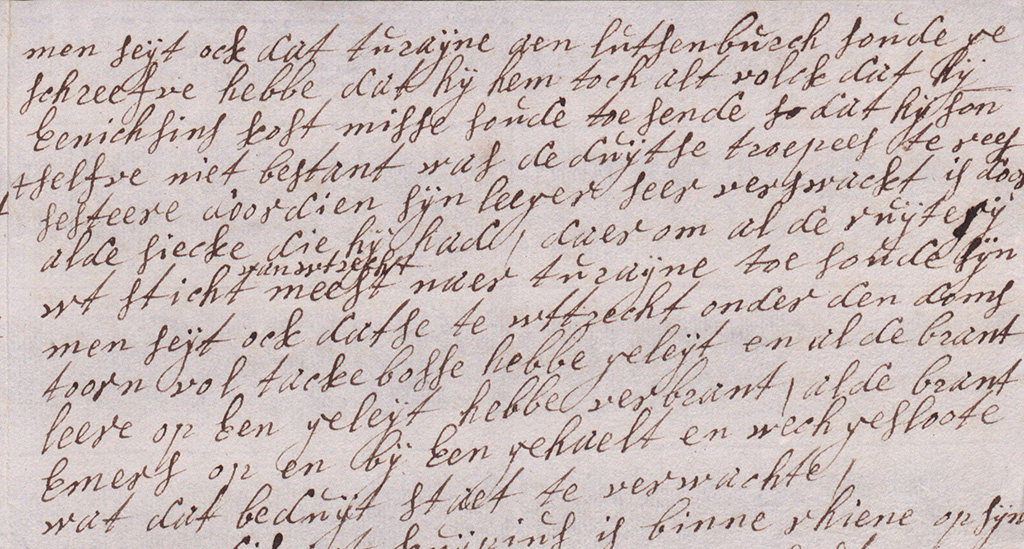 men seÿt ock dat turaÿne aen lutsenburch soude ge
schreefve hebbe dat hÿ hem toch alt volck dat hÿ
Eenichsins kost misse soude toe sende so dat hÿ son
selfve niet bestant was de duÿtse troepees te rees
sesteere doordien sÿn leeger seer verswackt is door
alde siecke die hÿ had / daerom al de ruÿterÿ
wt sticht van wtrecht meest naer turaÿne toe soude sÿn
men seÿt ock datse te wttrecht onder den doms
toorn vol tackebosse hebbe geleÿt en al de brant
leere op Een geleÿt hebbe verbrant / alde brant
Emers op en bÿ Een gehaelt en wech gesloote
wat dat beduÿt staet te verwachte /
is binne rhiene op sÿn